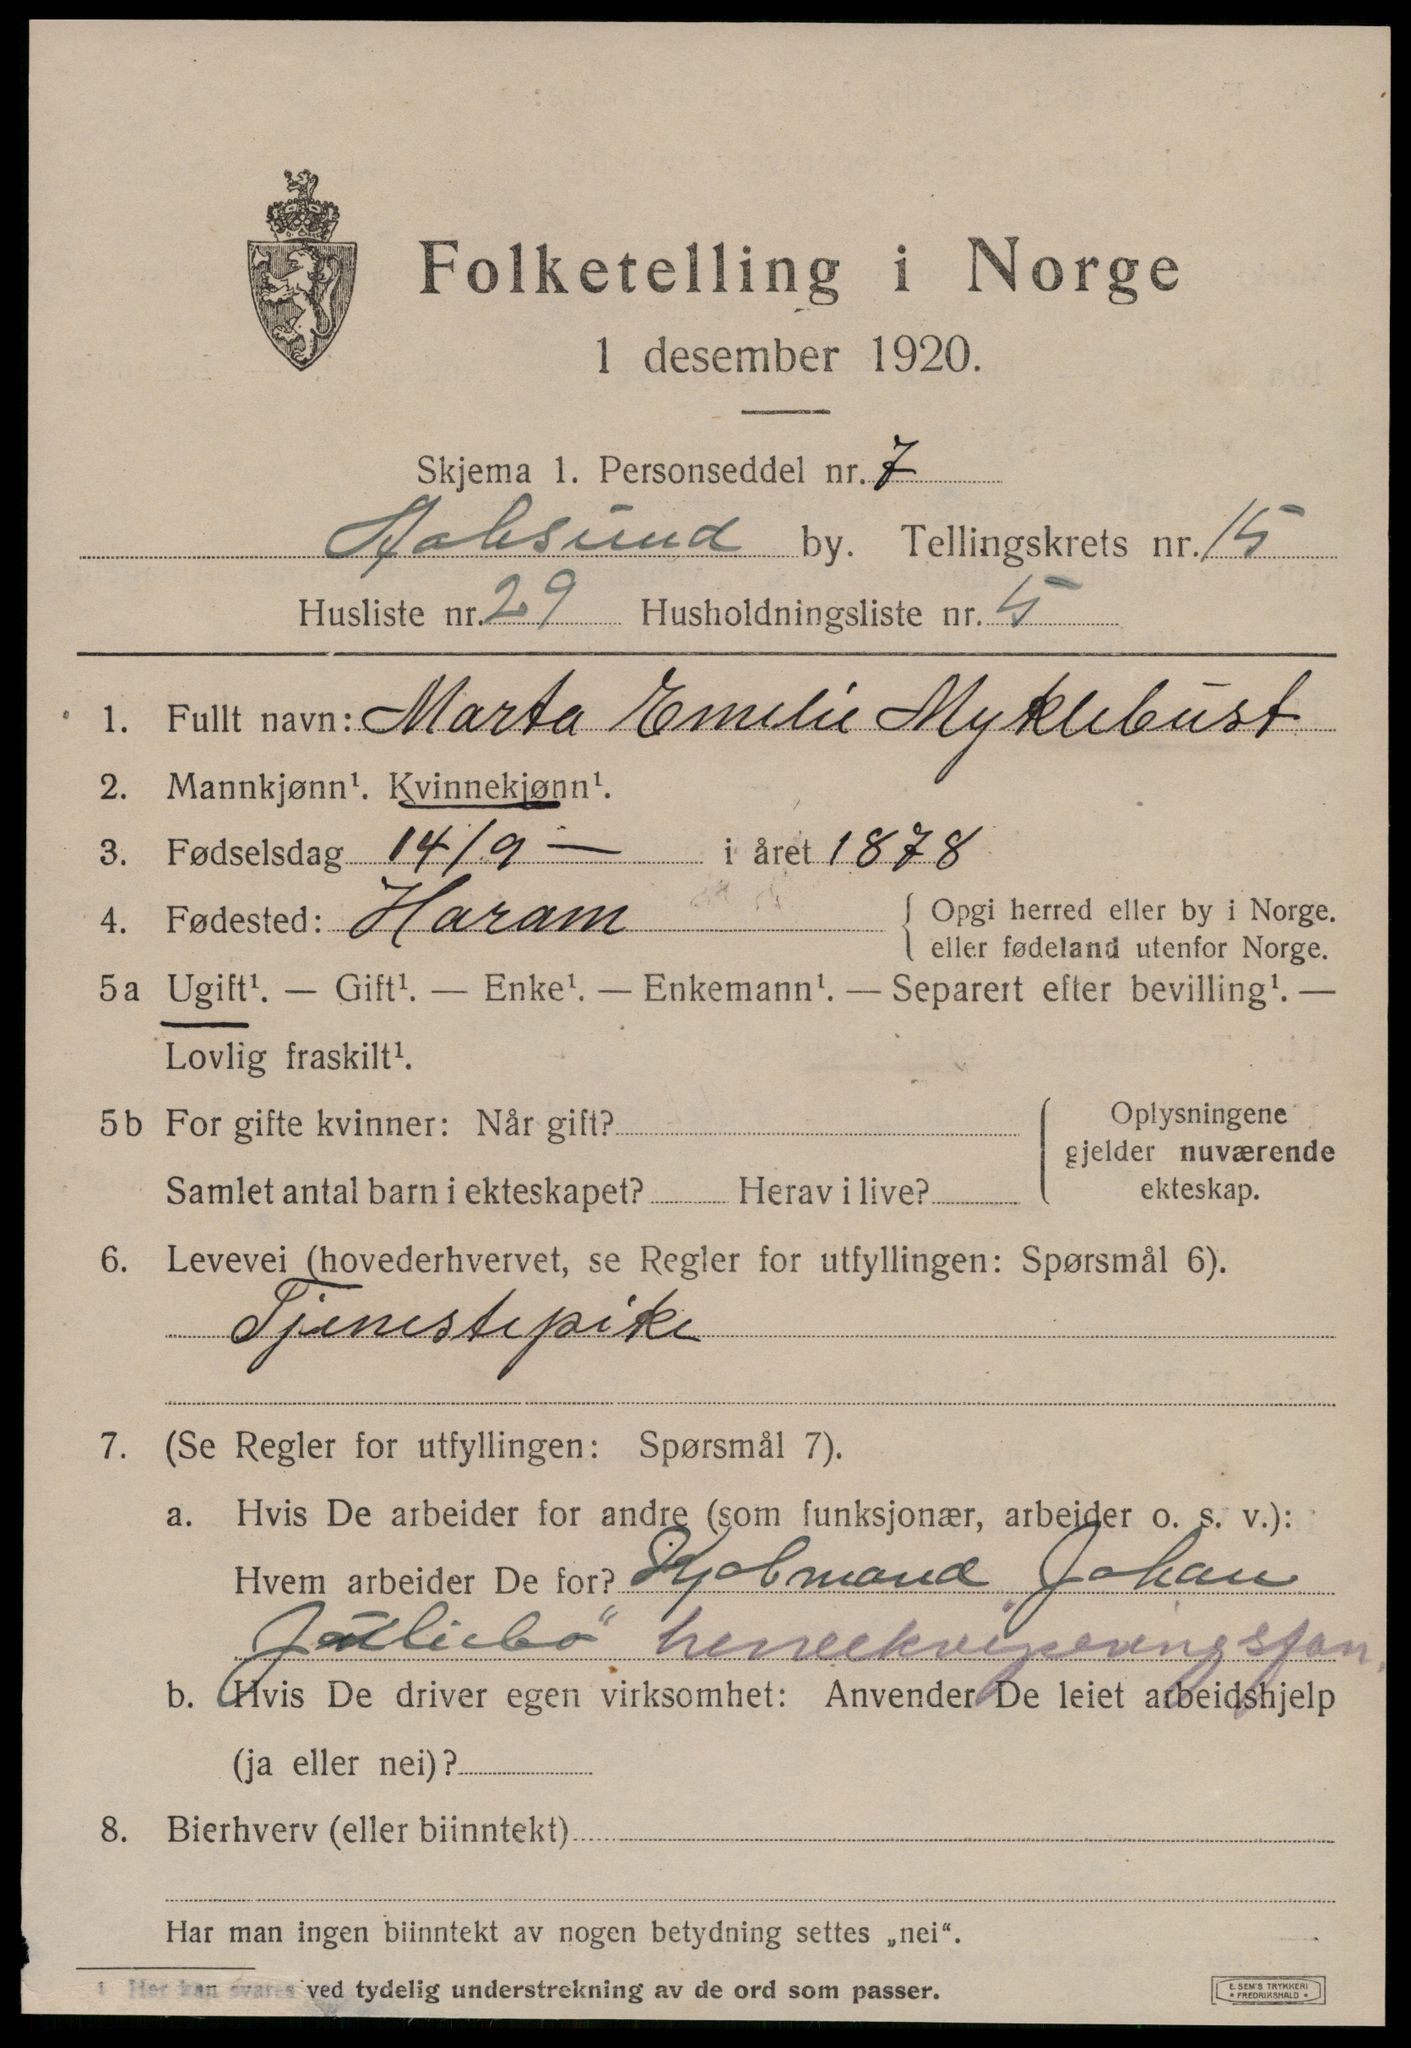 Folketelling i Norge
1 desember 1920.
Skjema 1. Personseddel nr. 7
Aalesund by. Tellingskrets nr. 15
Husliste nr. 29 Husholdningsliste nr. 5
1. Fullt navn: Marta Emelie Myklebust
2. Mannkjønn¹. Kvinnekjønn¹.
3. Fødselsdag 14/9 — i året 1878
4. Fødested: Haram { Opgi herred eller by i Norge.
eller fødeland utenfor Norge.
5a Ugift¹. — Gift¹. — Enke¹. — Enkemann¹. — Separert efter bevilling¹. —
Lovlig fraskilt¹.
5b For gifte kvinner: Når gift? Oplysningene
gjelder nuværende
Samlet antal barn i ekteskapet? Herav i live? ekteskap.
6. Levevei (hovederhvervet, se Regler for utfyllingen: Spørsmål 6).
Tjenestepike
7. (Se Regler for utfyllingen: Spørsmål 7).
a. Hvis De arbeider for andre (som funksjonær, arbeider o. s. v.):
Hvem arbeider De for? Kjøbmand Johan
herreekviperingsforr.
b. Hvis De driver egen virksomhet: Anvender De leiet arbeidshjelp
(ja eller nei)?
8. Bierhverv (eller biinntekt)
Har man ingen biinntekt av nogen betydning settes „nei“.
¹ Her kan svares ved tydelig understrekning av de ord som passer.
E. SEM'S TRYKKERI
* FREDRIKSHALD *